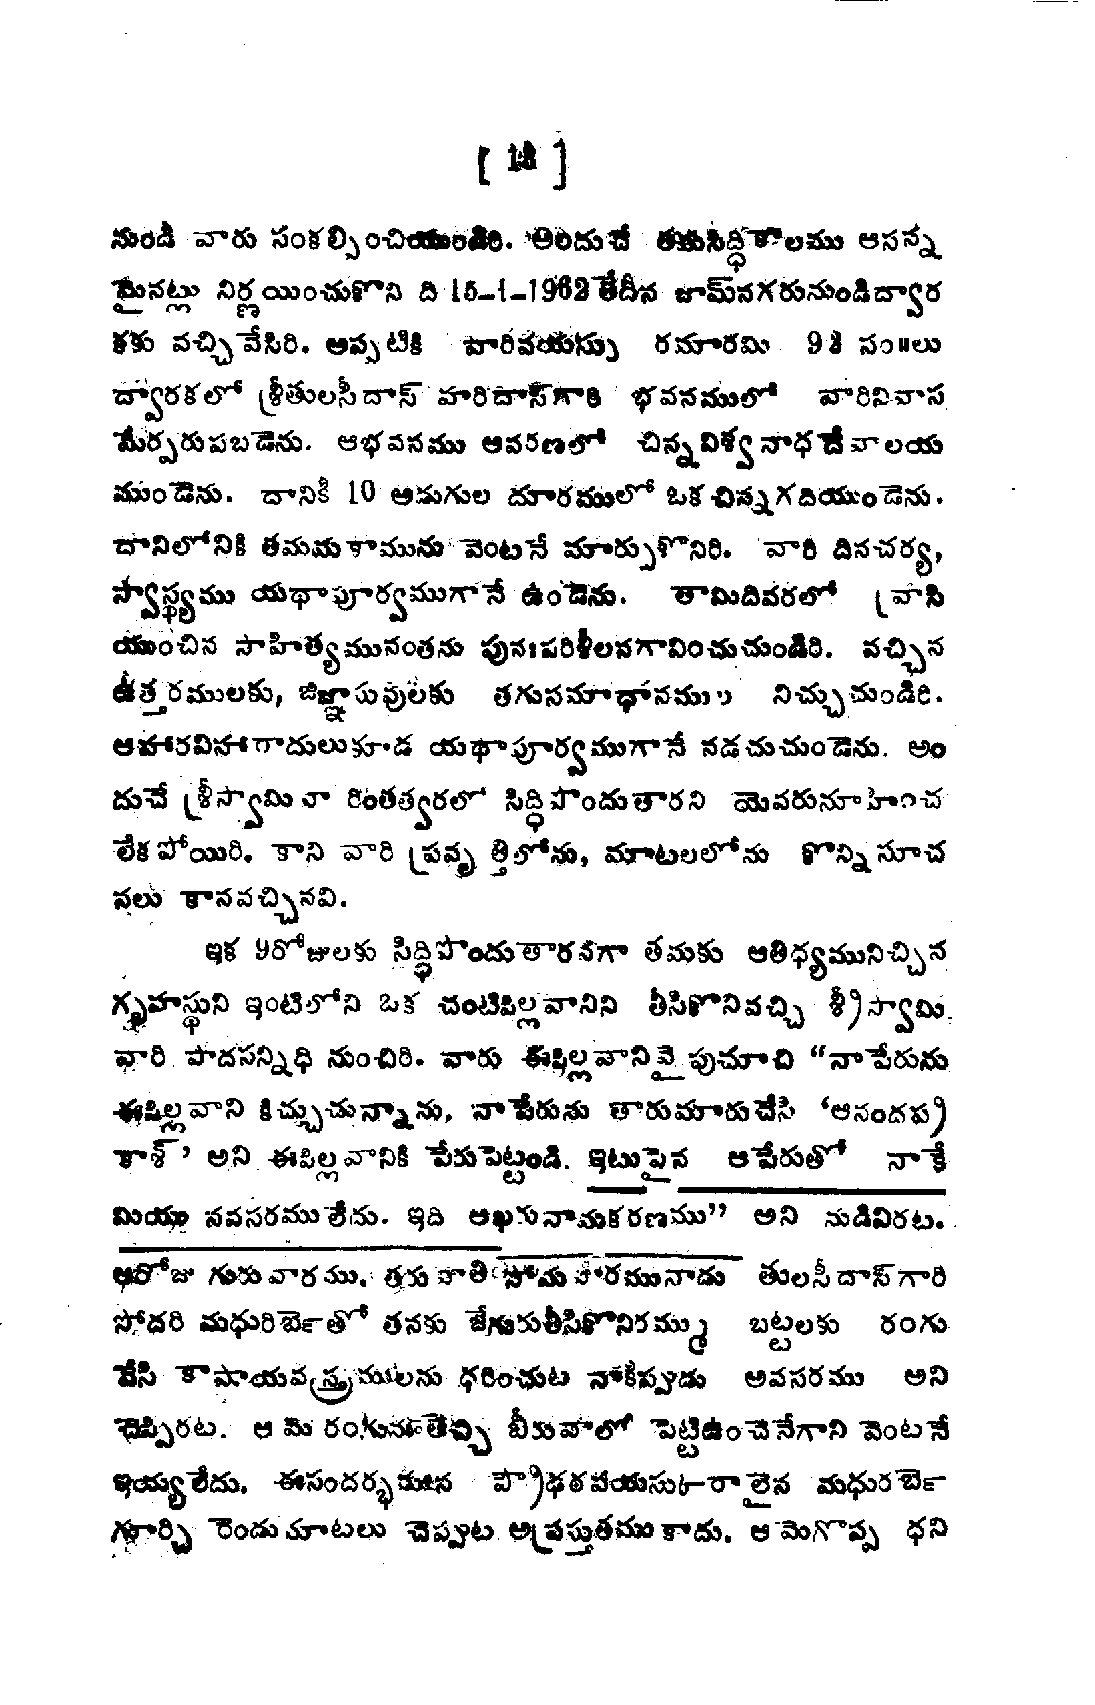 [ 13 ]
నుండీ వారు సంకల్పించియుండిరి. అందుచే తమసిద్ధికాలము ఆసన్న
మైనట్లు నిర్ణయించుకొని ది 15-1-1962 తేదీన జామ్‌నగరునుండిద్వార
కకు వచ్చివేసిరి. అప్పటికి వారివయస్సు రమారమి 93 సం॥లు
ద్వారకలో శ్రీతులసీదాస్ హరిదాస్‌గారి భవనములో వారినివాస
మేర్పరుపబడెను. ఆభవనము ఆవరణలో చిన్నవిశ్వనాధదేవాలయ
ముండెను. దానికి 10 అడుగుల దూరములో ఒకచిన్నగదియుండెను.
దానిలోనికి తమమకామును వెంటనే మార్చుకొనిరి. వారి దినచర్య,
స్వాస్థ్యము యథాపూర్వముగానే ఉండెను. తామిదివరలో వ్రాసి
యుంచిన సాహిత్యమునంతను పునఃపరిశీలనగావించుచుండిరి. వచ్చిన
ఉత్తరములకు, జిజ్ఞాసువులకు తగుసమాధానములు నిచ్చుచుండిరి.
ఆహారవిహారాదులుకూడ యథాపూర్వముగానే నడచుచుండెను. అం
దుచే శ్రీస్వామివా రింతత్వరలో సిద్ధిపొందుతారని యెవరునూహించ
లేకపోయిరి. కాని వారి ప్రవృత్తిలోను, మాటలలోను కొన్నిసూచ
నలు కానవచ్చినవి.
ఇక 9రోజులకు సిద్ధిపొందుతారనగా తమకు ఆతిధ్యమునిచ్చిన
గృహస్థుని ఇంటిలోని ఒక చంటిపిల్లవానిని తీసికొనివచ్చి శ్రీస్వామి
వారి పాదసన్నిధి నుంచిరి. వారు ఈపిల్లవానివైపుచూచి “నాపేరును
ఈపిల్లవాని కిచ్చుచున్నాను, నాపేరును తారుమారుచేసి ‘ఆనందప్ర
కాశ్’ అని ఈపిల్లవానికి పేరుపెట్టండి. ఇటుపైన ఆపేరుతో నాకే
మియు నవసరములేదు. ఇది ఆఖరునామకరణము” అని నుడివిరట.
ఆరోజు గురువారము. తరువాతి సోమవారమునాడు తులసీదాస్‌గారి
సోదరి మధురిబెన్‌తో తనకు జేగురుతీసికొనిరమ్ము బట్టలకు రంగు
వేసి కాషాయవస్త్రములను ధరించుట నాకిప్పుడు అవసరము అని
చెప్పిరట. ఆమె రంగునుతెచ్చి బీరువాలో పెట్టిఉంచెనేగాని వెంటనే
ఇయ్యలేదు. ఈసందర్భమున ప్రౌఢవయసుకురాలైన మధురబెన్
గూర్చి రెండుమాటలు చెప్పుట అప్రస్తుతముకాదు. ఆమెగొప్ప ధని